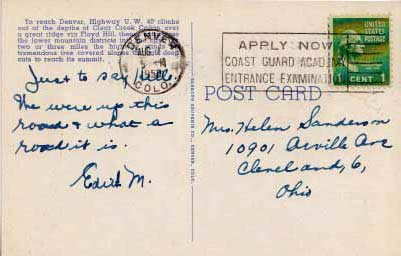 To reach Denver, Highway U.W. 40 climbs
out of the depths of Clear Creek Canon over
a great ridge via Floyd Hill,
the lower mountain districts in
two or three miles the highway winds
tremendous rose covered slopes deep
cuts to reach its summit.
DENVER
AUG
COLO.
APPLY NOW
COAST GUARD ACADEMY
ENTRANCE EXAMINATION
UNITED
STATES
POSTAGE
CENT 1
POST CARD
Just to say Hello.
We were up this
road & what a
road it is.
Edith M.
Mrs. Helen Sanderson
10901 Arville Ave
Cleveland, 6,
Ohio